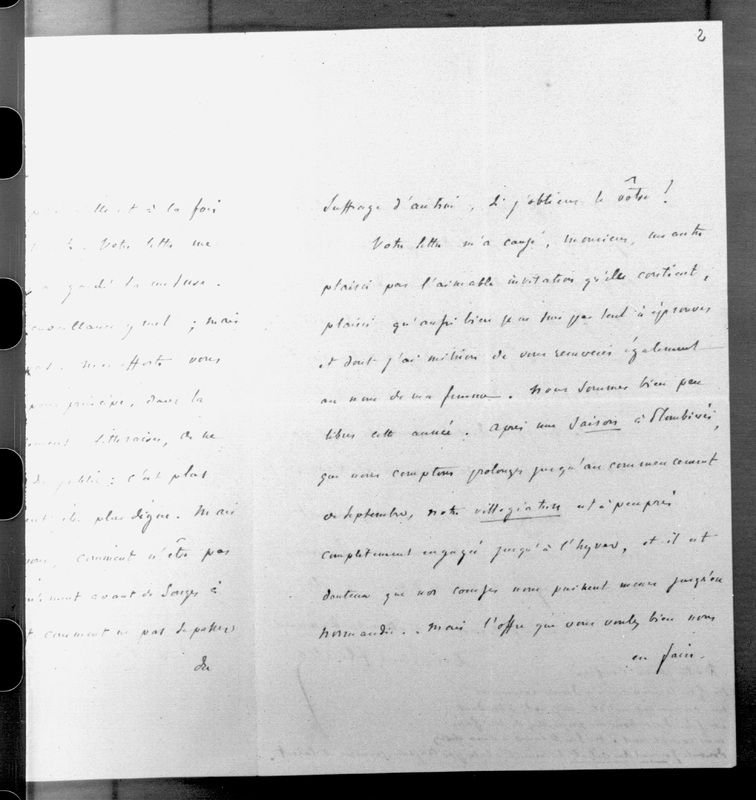 2
et à la fois
votre lettre me
gardé la mesure.
; mais
efforts vous
principe, dans la
littéraires, de ne
public : c'est plus
plus digne. Mais
comment n'être pas
avant de songer à
comment ne pas se passer
du
suffrage d'autrui, si j'obtiens le vôtre !
Votre lettre m'a causé, Monsieur, un autre
plaisir par l'aimable invitation qu'elle contient,
plaisir qu'aussi bien je ne suis pas seul à éprouver
et dont j'ai mission de vous remercier également
au nom de ma femme. Nous sommes bien peu
libres cette année. Après une saison à Plombières,
que nous comptons prolonger jusqu'au commencement
de septembre, notre villégiature est à peu près
complètement engagée jusqu'à l'hyver, et il est
douteux que nos courses nous puissent mener jusqu'en
Normandie.. Mais l'offre que vous voulez bien nous
en faire